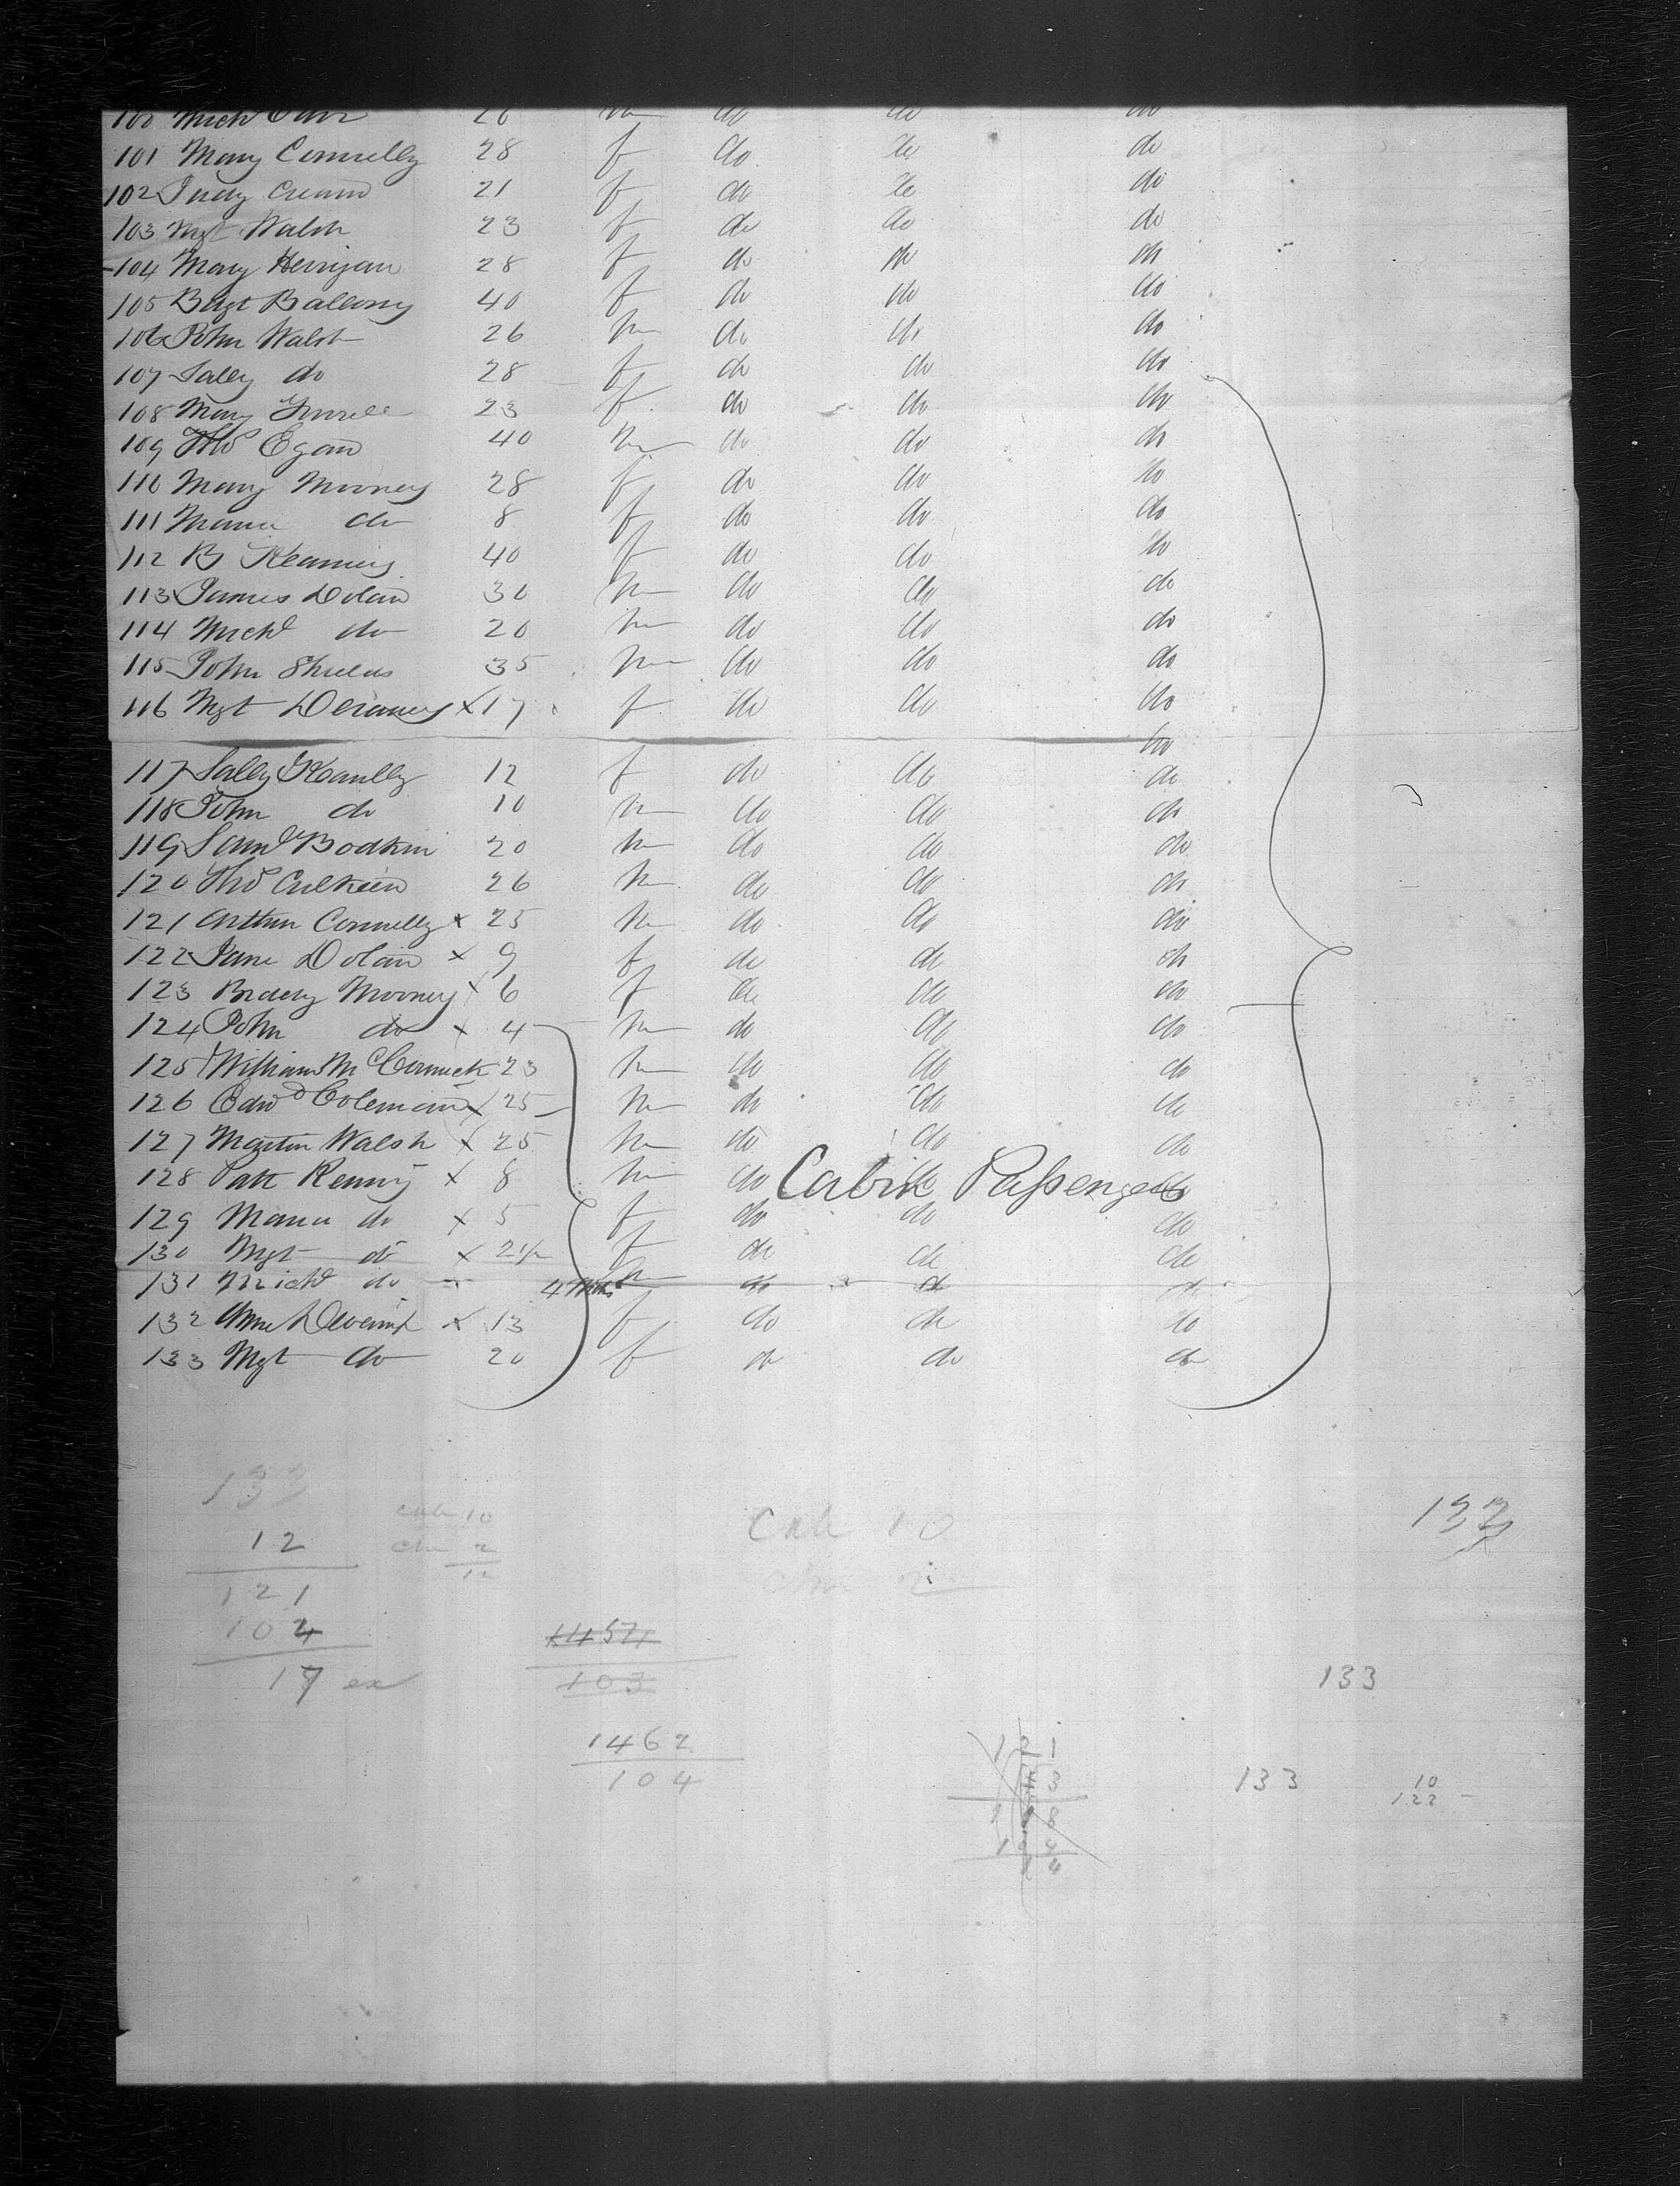 100 Mich 26 m do do do
101 Mary Connelly 28 f do do do
102 Judy 21 f do do do
103 Mgt Walsh 23 f do do do
104 Mary 28 f do do do
105 Bdgt 40 f do do do
106 John Walsh 26 m do do do
107 Sally do 28 f do do do
108 Mary 23 f do do do
109 Thos Egan 40 m do do do
110 Mary Mooney 28 f do do do
111 Maria do 8 f do do do
112 B 40 f do do do
113 James Dolan 30 m do do do
114 Michl do 20 m do do do
115 John Shields 35 m do do do
116 Mgt x 17 f do do do
do
117 Sally 12 f do do do
118 John do 10 m do do do
119 Saml Bodkin 20 m do do do
120 Thos Culkeen 26 m do do do
121 Arthur Connelly x 25 m do do do
122 Jane Dolan x 9 f do do do
123 Mooney x 6 f do do do
124 John do x 4 m do do do
125 William McCormick 23 m do do do
126 Edwd Coleman x 25 m do do do
127 Martin Walsh x 25 m do do do
128 Patt Kenny x 8 m do do do
Cabin Passengers
129 Maria do x 5 f do do do
130 Mgt do x 2 1/2 f do do do
131 Michl do 4 Mths m do do do
132 Anne x 13 f do do do
133 Mgt do 20 f do do do
133
12
121
104
17 ex
cab 10
ch 2
12
cab 10
133
103
1462
104
133
133
10
122